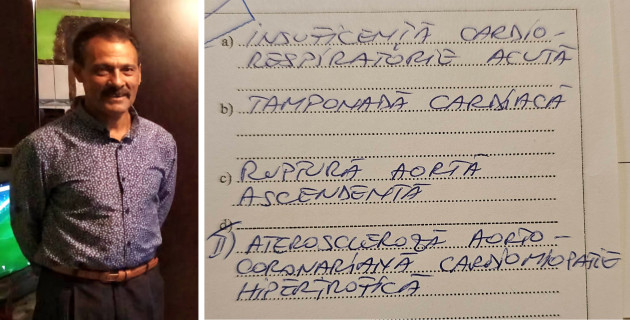 a) INSUFICENȚĂ CARDIO-
RESPIRATORIE ACUTĂ
b) TAMPONADĂ CARDIACĂ
c) RUPTURĂ AORTĂ
ASCENDENTĂ
d)
II) ATEROSCLEROZĂ AORTO-
CORONARIANĂ CARDIOMIOPATIE
HIPERTROTICĂ